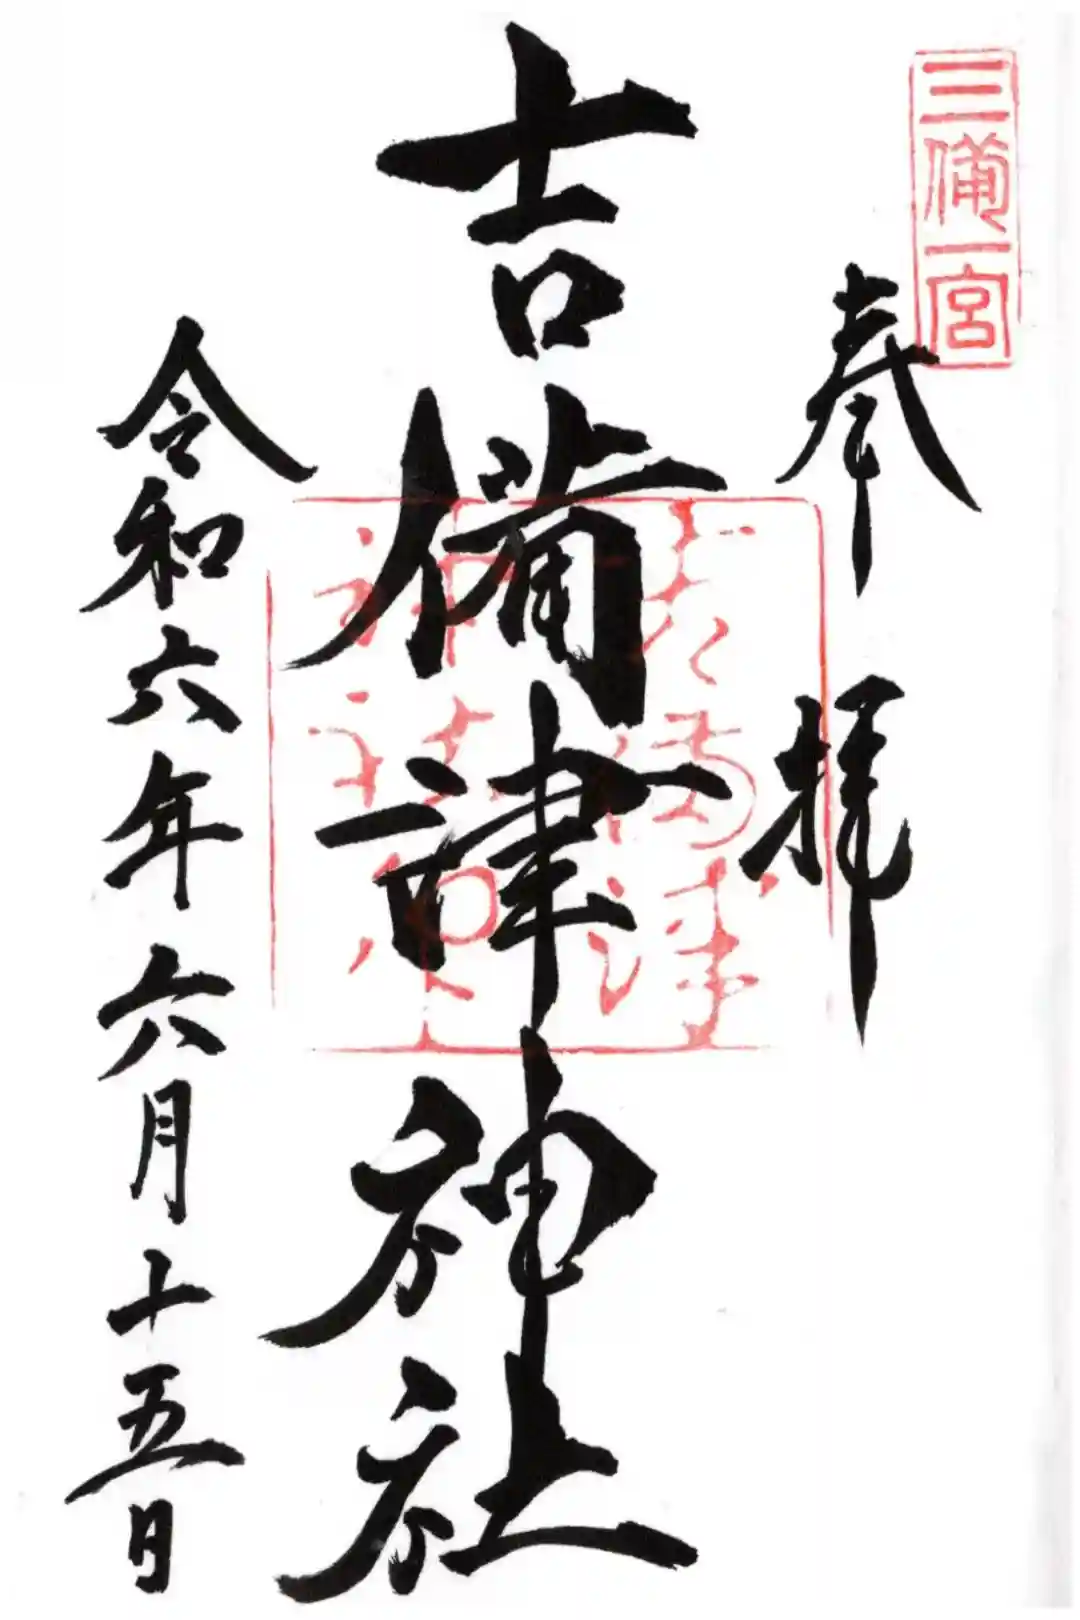 三備一宮
奉拝
吉備津神社
令和六年六月十五日